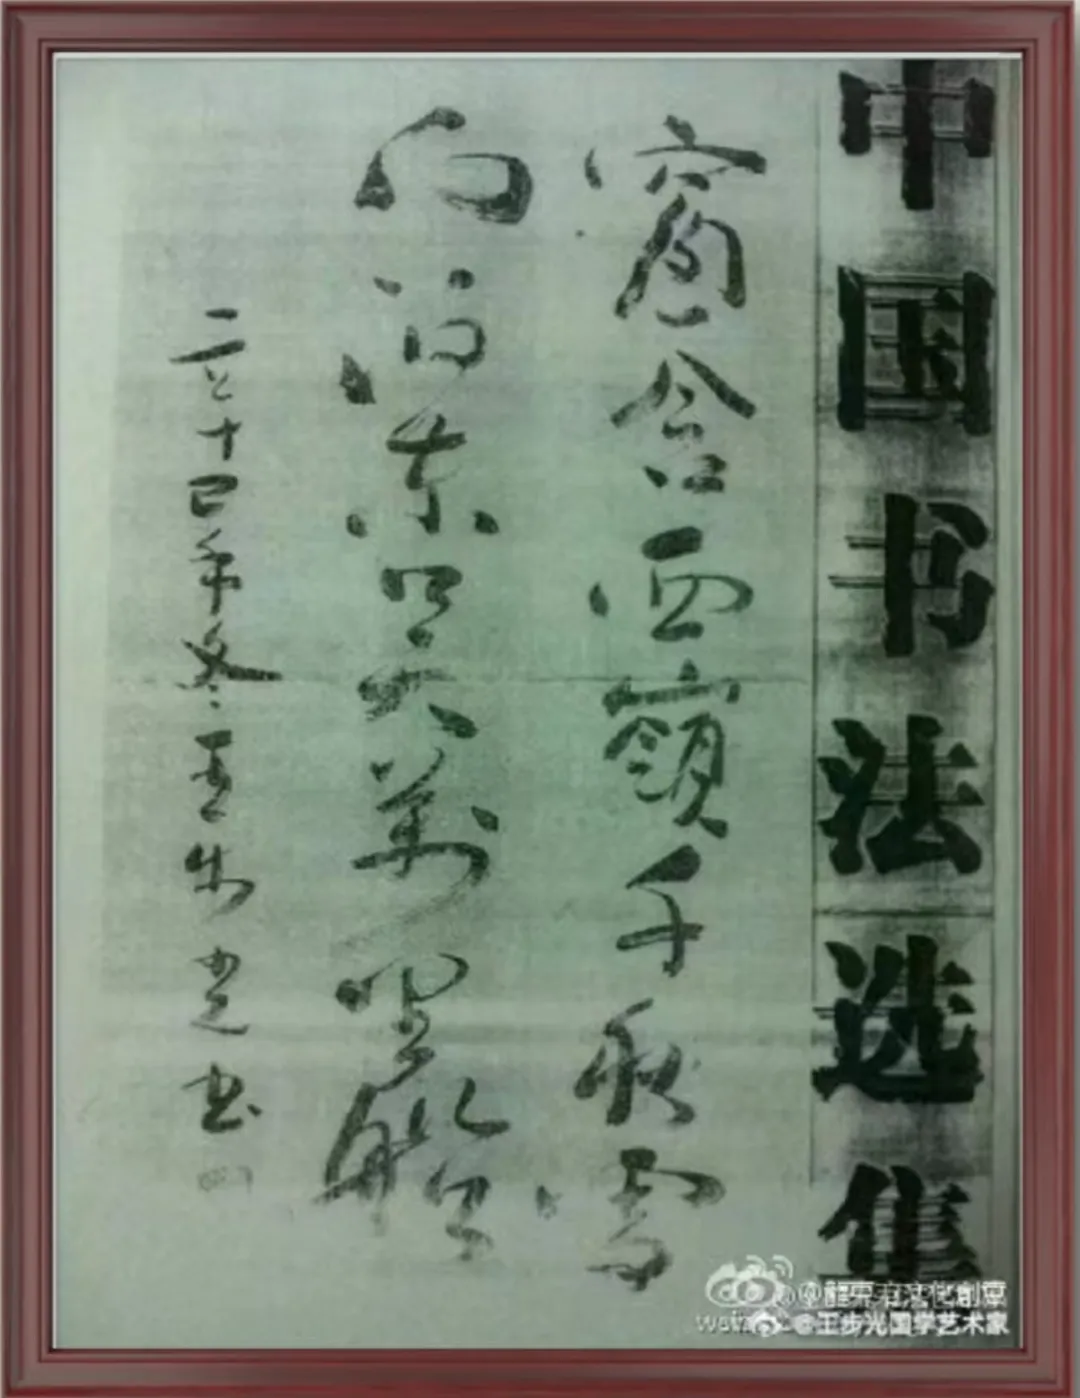 中国书法选集
窗含西嶺千秋雪
门泊東吴萬里船
二〇十四年冬王步光书
@王步光国学艺术家